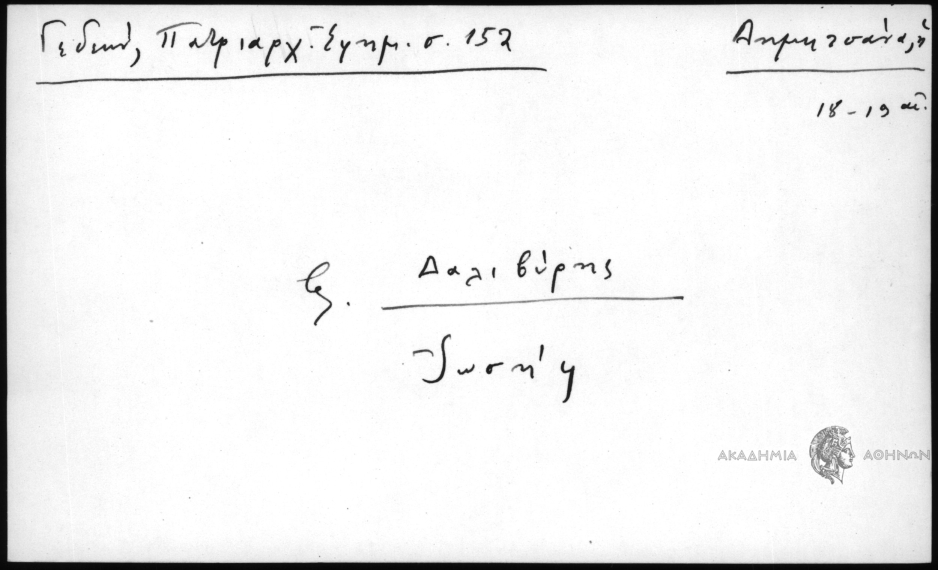 Γεδεών, Πατριαρχ. Εφημ. σ. 152
Δημητσάνα, ἡ
18-19 αἰ.
Δαλιβύρης
Ἰωσήφ
ΑΚΑΔΗΜΙΑ ΑΘΗΝΩΝ